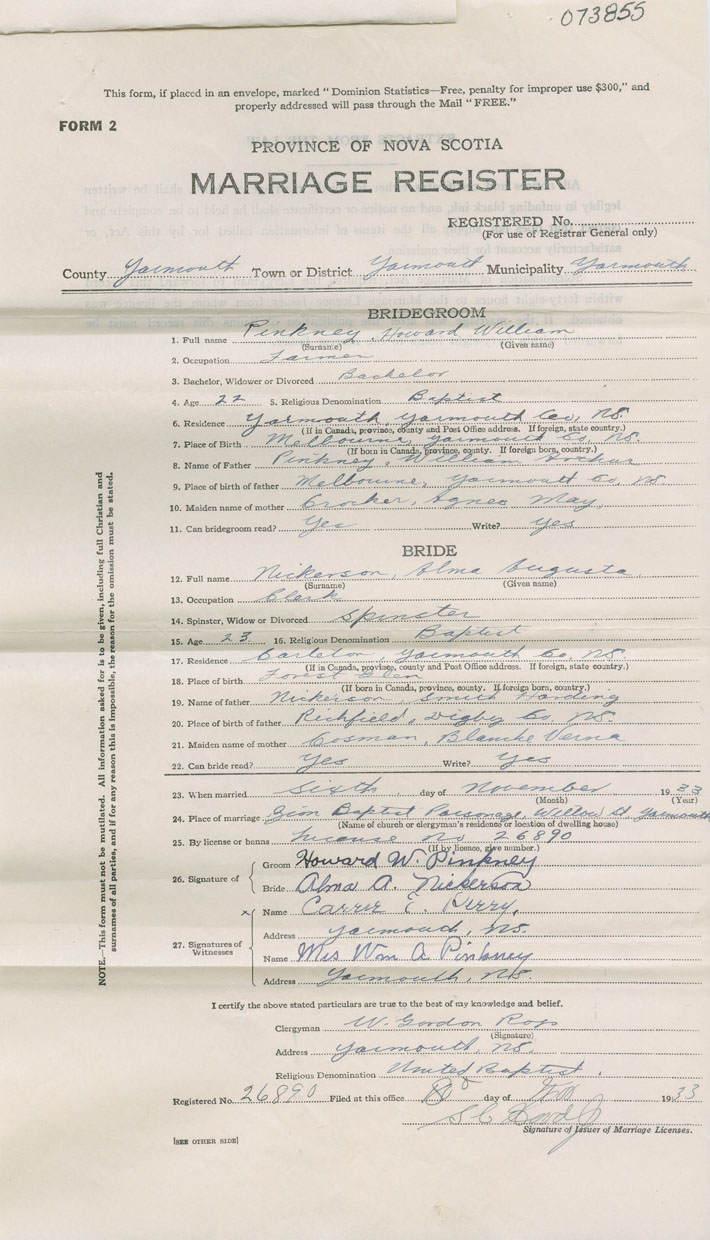 073855
This form, if placed in an envelope, marked "Dominion Statistics—Free, penalty for improper use $300," and
properly addressed will pass through the Mail "FREE."
FORM 2
PROVINCE OF NOVA SCOTIA
MARRIAGE REGISTER
REGISTERED No.
(For use of Registrar General only)
County Yarmouth Town or District Yarmouth Municipality Yarmouth
BRIDEGROOM
1. Full name Pinkney, Howard William
(Surname) (Given name)
2. Occupation Farmer
3. Bachelor, Widower or Divorced Bachelor
4. Age 22 5. Religious Denomination Baptist
6. Residence Yarmouth, Yarmouth Co, NS.
(If in Canada, province, county and Post Office address. If foreign, state country.)
7. Place of Birth Melbourne, Yarmouth Co, NS.
(If born in Canada, province, county. If foreign born, country.)
8. Name of Father Pinkney, William
9. Place of birth of father Melbourne, Yarmouth Co, NS.
10. Maiden name of mother Crocker, Agnes May,
11. Can bridegroom read? Yes Write? Yes
BRIDE
12. Full name Nickerson, Alma Augusta
(Surname) (Given name)
13. Occupation Clerk
14. Spinster, Widow or Divorced Spinster
15. Age 23 16. Religious Denomination Baptist
17. Residence Carleton, Yarmouth Co, NS.
(If in Canada, province, county and Post Office address. If foreign, state country.)
18. Place of birth Forest Glen
(If born in Canada, province, county. If foreign born, country.)
19. Name of father Nickerson, Smith Harding
20. Place of birth of father Richfield, Digby Co, NS.
21. Maiden name of mother Cosman, Blanche Verna
22. Can bride read? Yes Write? Yes
23. When married Sixth day of November 1933
(Month) (Year)
24. Place of marriage Zion Baptist Parsonage, St, Yarmouth
(Name of church or clergyman's residence or location of dwelling house)
25. By license or banns license no 26890
(If by licence, give number.)
26. Signature of
Groom Howard W. Pinkney
Bride Alma A. Nickerson
27. Signatures of Witnesses
x
Name Carrie E. Perry,
Address Yarmouth, NS.
Name Mrs Wm A Pinkney
Address Yarmouth, N.S.
I certify the above stated particulars are true to the best of my knowledge and belief.
Clergyman W. Gordon Ross
(Signature)
Address Yarmouth, NS.
Religious Denomination United Baptist.
Registered No. 26890 Filed at this office day of Nov 1933
Signature of Issuer of Marriage Licenses.
[SEE OTHER SIDE]
NOTE.—This form must not be mutilated. All information asked for is to be given, including full Christian and
surnames of all parties, and if for any reason this is impossible, the reason for the omission must be stated.